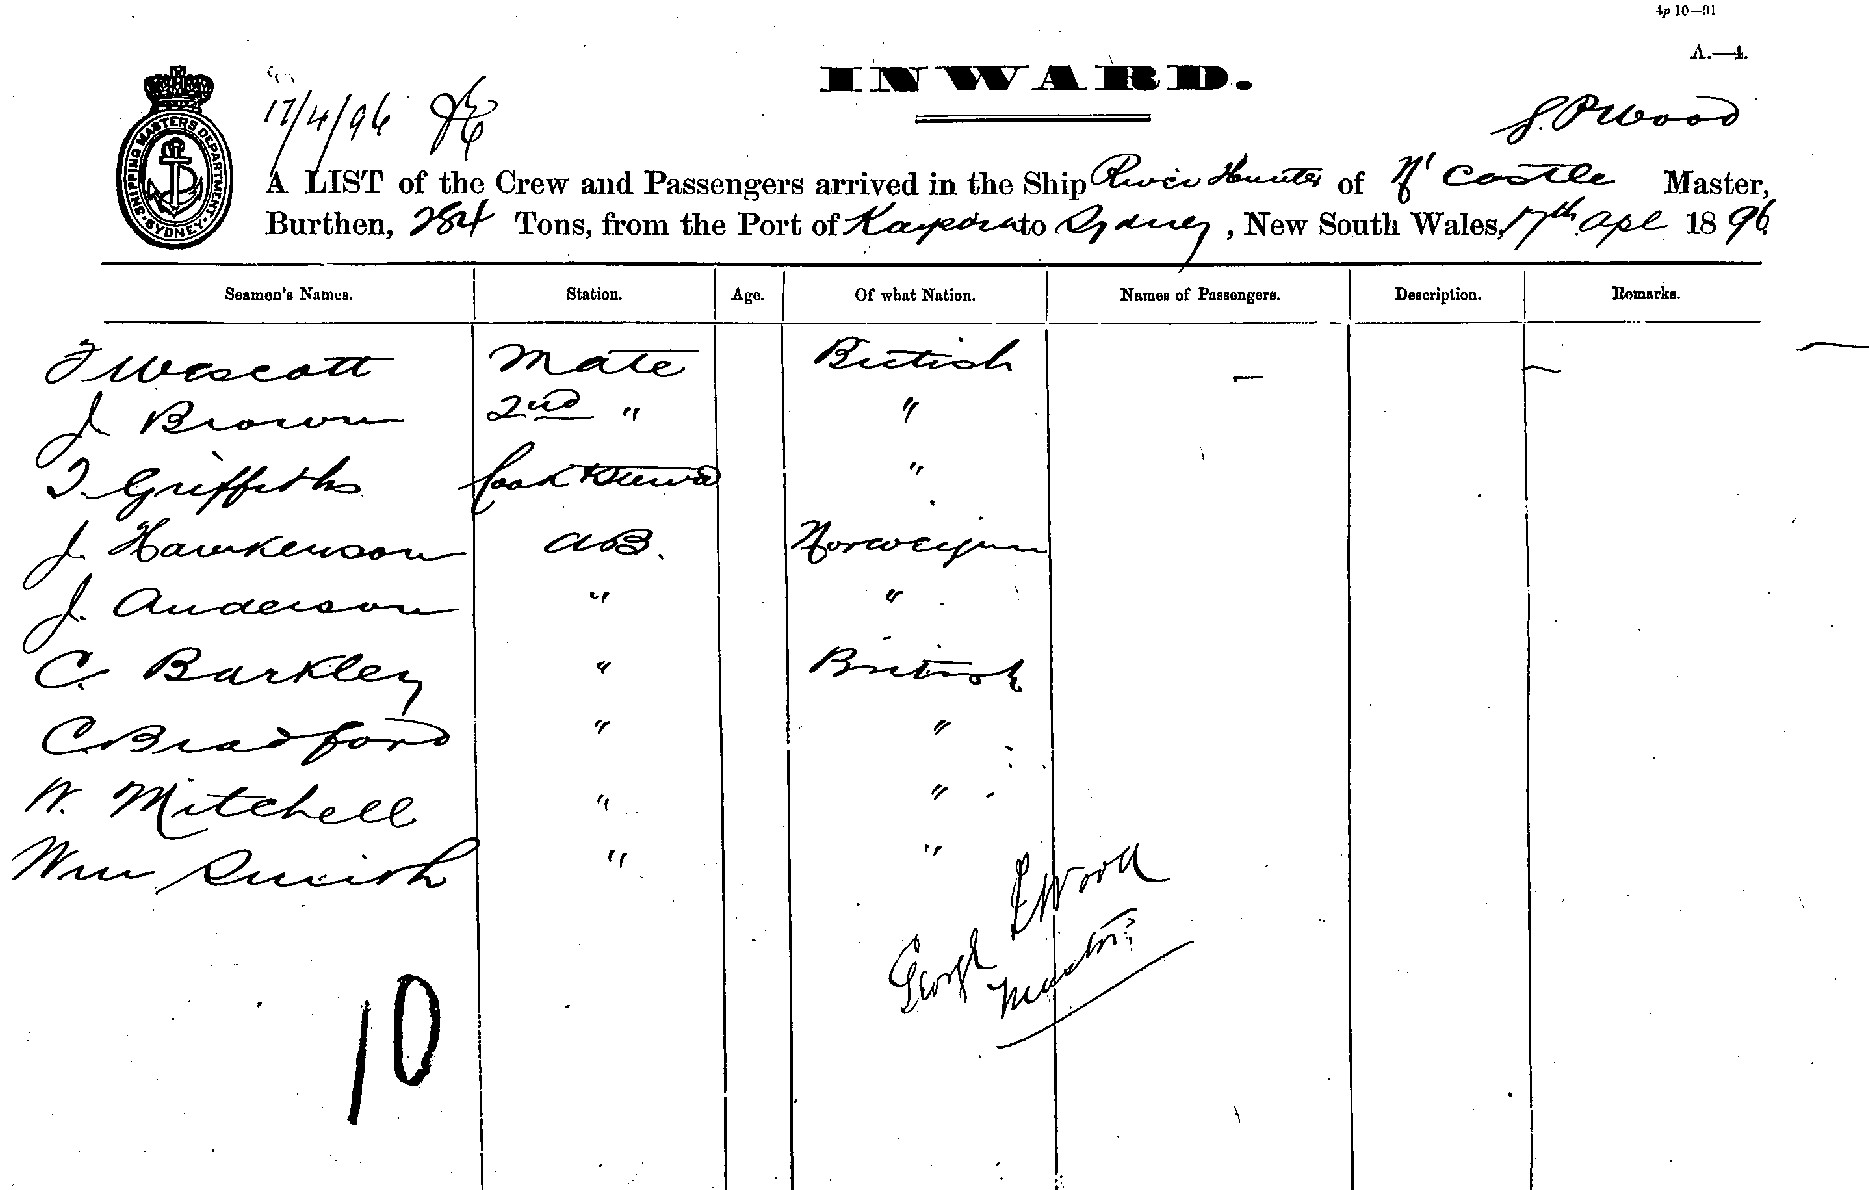 4p 10—91
A.—4.
INWARD.
17/4/96
SHIPPING MASTERS DEPARTMENT SYDNEY
G. P Wood
A LIST of the Crew and Passengers arrived in the Ship River Hunter of N' Castle Master,
Burthen, 284 Tons, from the Port of to Sydney, New South Wales, 17th Apl 1896
Seamen's Names. Station. Age. Of what Nation. Names of Passengers. Description. Remarks.
Wescott Mate British — — —
J. Brown 2nd " "
T. Griffiths Cook & Stewd "
J. Hawkenson A.B. Norweigan
J. Anderson " "
C. Barkley " British
C. Bradford " "
W. Mitchell " "
Wm " "
George P Wood
Master
10